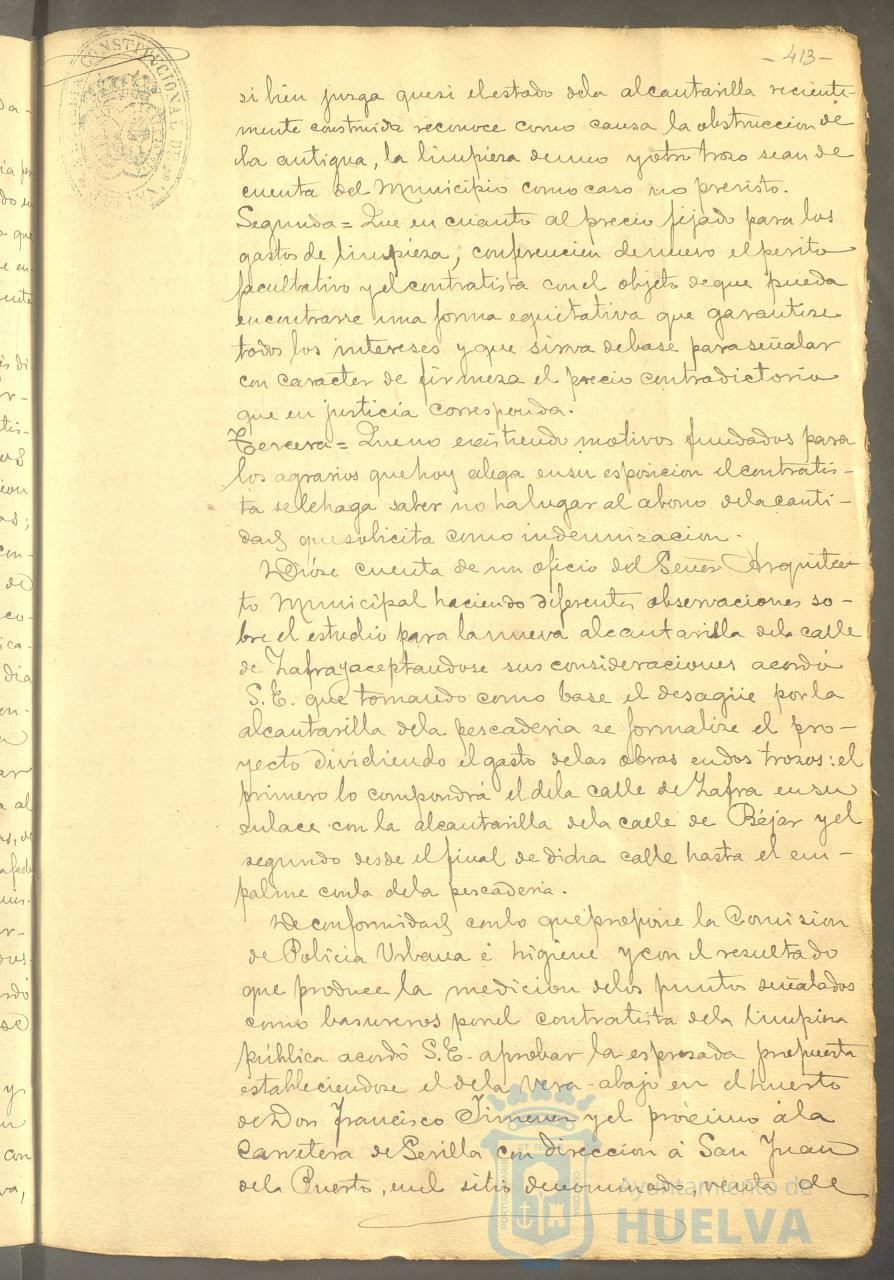 - 413 -
CONSTITUCIONAL DE
si bien juzga que si el estado de la alcantarilla reciente-
mente construida reconoce como causa la obstruccion de
la antigua, la limpieza de uno y otro trozo sean de
cuenta del Municipio como caso no previsto.
Segunda = Que en cuanto al precio fijado para los
gastos de limpieza, conferencien de nuevo el perito
facultativo y el contratista con el objeto de que pueda
encontrarse una forma equitativa que garantise
todos los intereses y que sirva de base para señalar
con caracter de firmeza el precio contradictorio
que en justicia corresponda.
Tercera = Que no existiendo motivos fundados para
los agravios que hoy alega en su esposicion el contratis-
ta se le haga saber no ha lugar al abono de la canti-
dad que solicita como indemnizacion.
Dióse cuenta de un oficio del Señor Arquitec-
to Municipal haciendo diferentes observaciones so-
bre el estudio para la nueva alcantarilla de la calle
de Zafra y aceptandose sus consideraciones acordó
S.E. que tomando como base el desagüe por la
alcantarilla de la pescaderia se formalize el pro-
yecto dividiendo el gasto de las obras en dos trozos: el
primero lo compondrá el de la calle de Zafra en su
enlace con la alcantarilla de la calle de Béjar y el
segundo desde el final de dicha calle hasta el em-
palme con la de la pescaderia.
De conformidad con lo que propone la Comision
de Policia Urbana é higiene y con el resultado
que produce la medicion de los puntos señalados
como basureros por el contratista de la limpieza
pública acordó S.E. aprobar la espresada propuesta
estableciendose el de la Vera-abajo en el huerto
de Don Francisco Jimenez y el prócsimo á la
Carretera de Sevilla con direccion á San Juan
del Puerto, en el sitio denominado, venta de
Ayuntamiento de
HUELVA